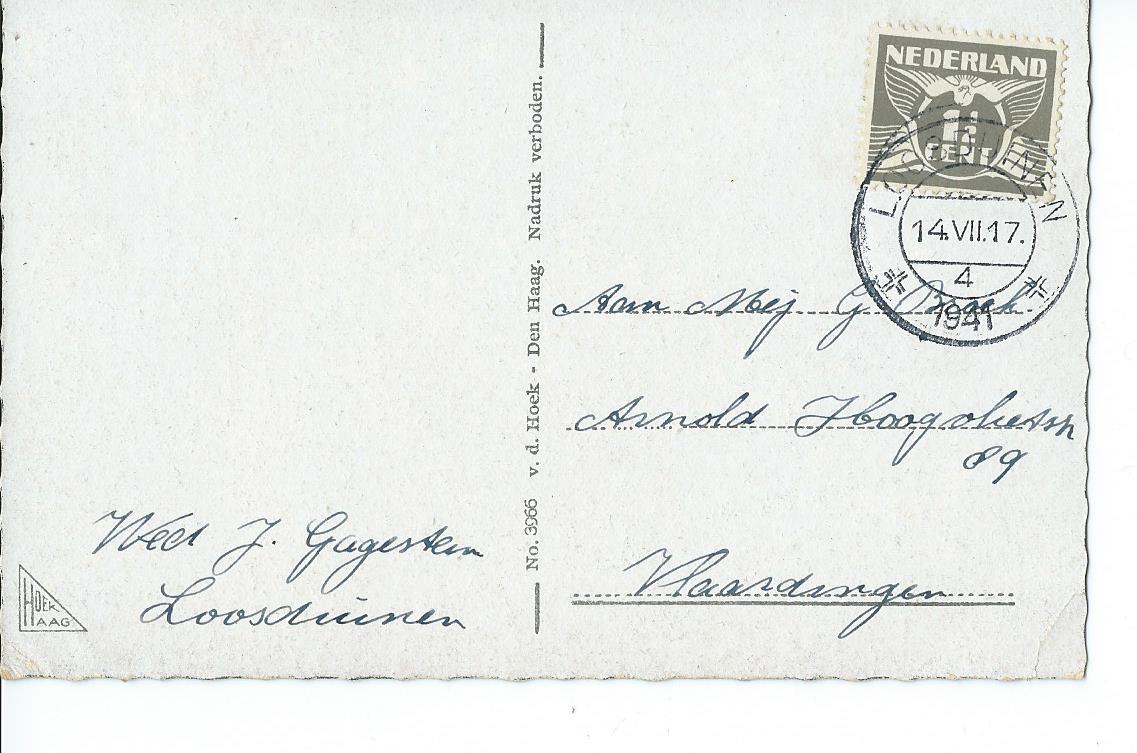 NEDERLAND
1½
CENT
LOOSDUINEN
14.VII.17.
4
1941
Aan Mej G
Arnold Hoogvlietstr
89
Vlaardingen
Wed J. Gagestein
Loosduinen
No. 3966 v. d. Hoek - Den Haag. Nadruk verboden.
HOEK
HAAG